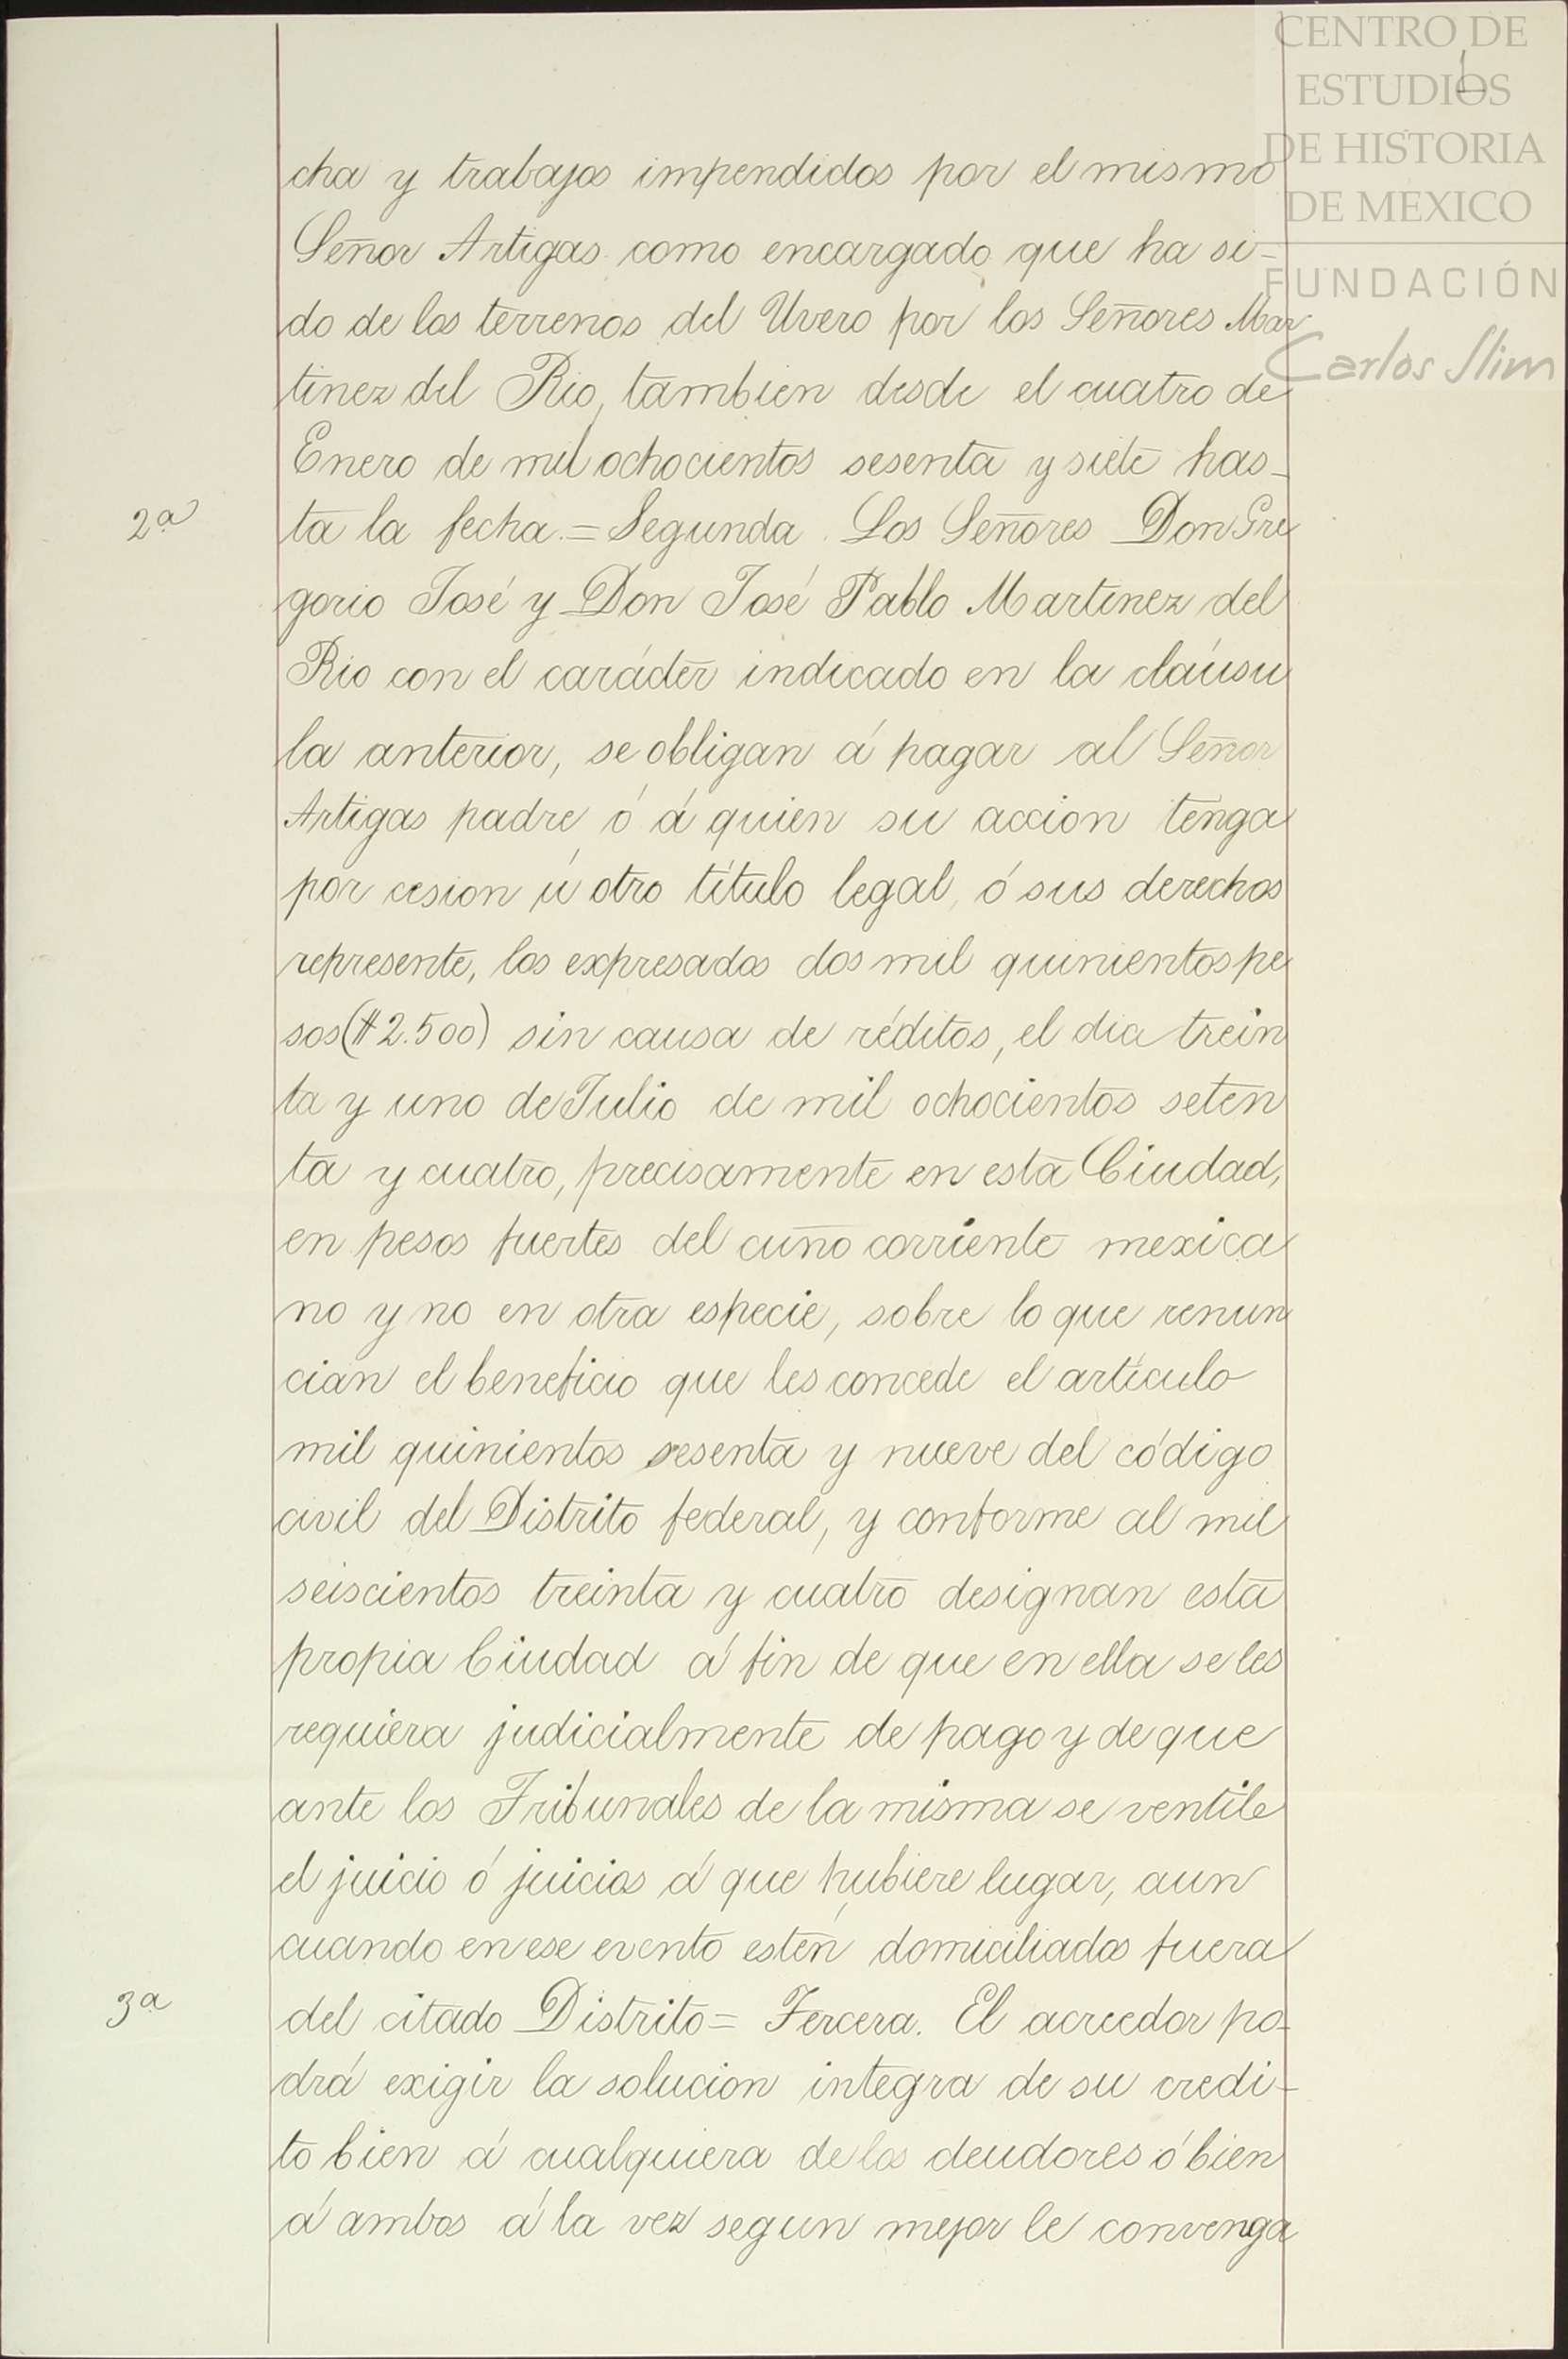 CENTRO DE
ESTUDIOS
DE HISTORIA
DE MEXICO
FUNDACIÓN
Carlos Slim
1
cha y trabajos impendidos por el mismo
Señor Artigas como encargado que ha si-
do de los terrenos del Uvero por los Señores Mar
tinez del Rio, tambien desde el cuatro de
Enero de mil ochocientos sesenta y siete has-
2ª
ta la fecha.= Segunda. Los Señores Don Gre
gorio José y Don José Pablo Martinez del
Rio con el carácter indicado en la cláusu
la anterior, se obligan á pagar al Señor
Artigas padre, ó á quien su accion tenga
por cesion ú otro título legal, ó sus derechos
represente, los expresados dos mil quinientos pe
sos ($2.500) sin causa de réditos, el dia trein
ta y uno de Julio de mil ochocientos seten
ta y cuatro, precisamente en esta Ciudad,
en pesos fuertes del cuño corriente mexica
no y no en otra especie, sobre lo que renun
cian el beneficio que les concede el artículo
mil quinientos sesenta y nueve del código
civil del Distrito federal, y conforme al mil
seiscientos treinta y cuatro designan esta
propia Ciudad á fin de que en ella se les
requiera judicialmente de pago y de que
ante los Tribunales de la misma se ventile
el juicio ó juicios á que hubiere lugar, aun
cuando en ese evento estén domiciliados fuera
3ª
del citado Distrito= Tercera. El acreedor po-
drá exigir la solucion integra de su credi-
to bien á cualquiera de los deudores ó bien
á ambos á la vez segun mejor le convenga